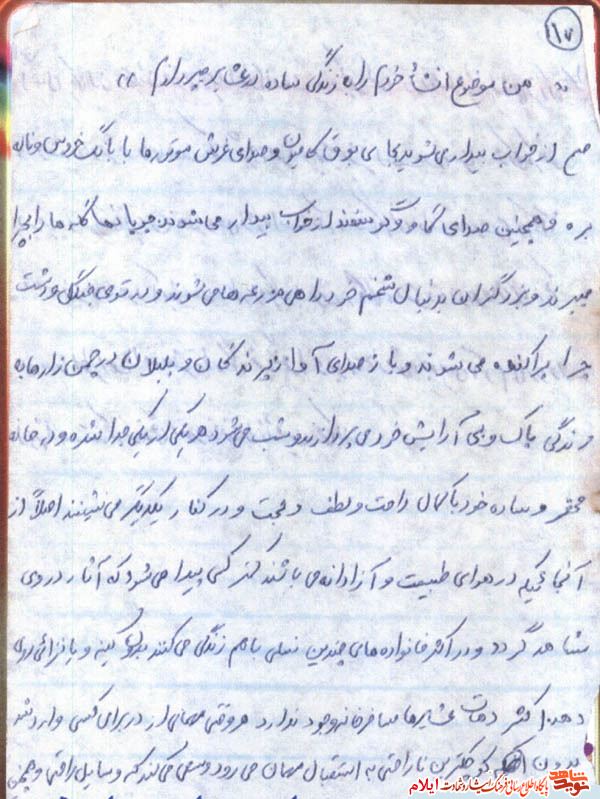 ۱۷
« من موضوع انشاء خودم را به زندگی ساده در عشایر میپردازم »
صبح از خواب بیدار می‌شوید بجای بوق کامیون و صدای غرش موتورها با بانگ خروس و ناله
بره و همچنین صدای گاو و گوسفند از خواب بیدار می‌شوند چوپانها گله ها را بچرا
میبرند و برزگران بدنبال شخم خود راهی مزرعه ها می‌شوند و در توی جنگل و دشت
چرا پراکنده می شوند و با صدای آواز پرندگان و بلبلان در چمن زارها به
زندگی پاک و بی آرایش خود می پردازند و شب می‌شود هر یکی از یکی جدا نشده و در خانه
محقر و ساده خود با کمال راحت و لطف و محبت و در کنار یکدیگر می‌نشینند اصلاً از
آنجائیکه در هوای طبیعت و آزادانه می باشند کمتر کسی پیدا می‌شود که آثار در روی
شاهد گردد و در اکثر خانواده های چندین نسلی با هم زندگی می‌کنند بدون کینه و یا نزاعی روی
دهد اکثر دهات عشایرها مسافرخانه وجود ندارد هر وقتی مهمانی از در برای کسی وارد شد
بدون که کوچکترین ناراحتی به استقبال مهمان می رود و سعی می‌کند که وسایل راحتی و
نوید شاهد
پایگاه اطلاع رسانی فرهنگ ایثار و شهادت ایلام